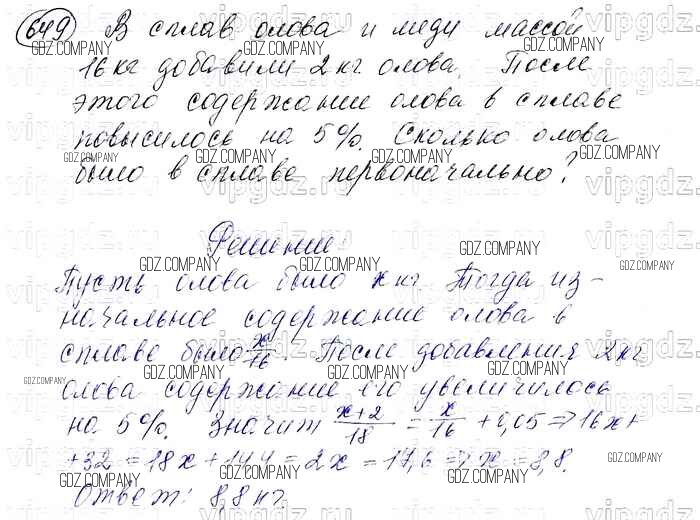 649 В сплав олова и меди массой
16 кг добавили 2 кг олова. После
этого содержание олова в сплаве
повысилось на 5%. Сколько олова
было в сплаве первоначально?
Решение:
Пусть олова было x кг. Тогда из-
начальное содержание олова в
сплаве было x/16. После добавления 2 кг
олова содержание его увеличилось
на 5%. Значит (x+2)/18 = x/16 + 0,05 => 16x+
+32 = 18x + 14,4 = 2x = 17,6 => x = 8,8.
Ответ: 8,8 кг.